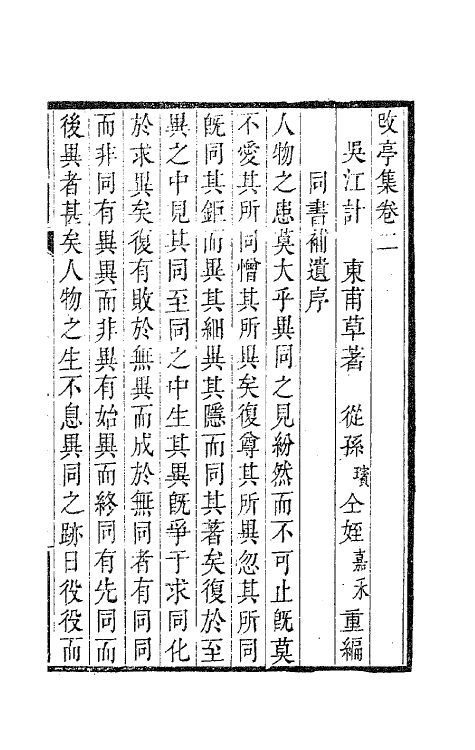 改亭集卷二
吳江計 東甫草著 從孫璸仝姪嘉禾重編
同書補遺序
人物之患莫大乎異同之見紛然而不可止旣莫
不愛其所同憎其所異矣復尊其所異忽其所同
旣同其鉅而異其細異其隱而同其著矣復於至
異之中見其同至同之中生其異旣爭于求同化
於求異矣復有敗於無異而成於無同者有同同
而非同有異異而非異有始異而終同有先同而
後異者甚矣人物之生不息異同之跡日役役而